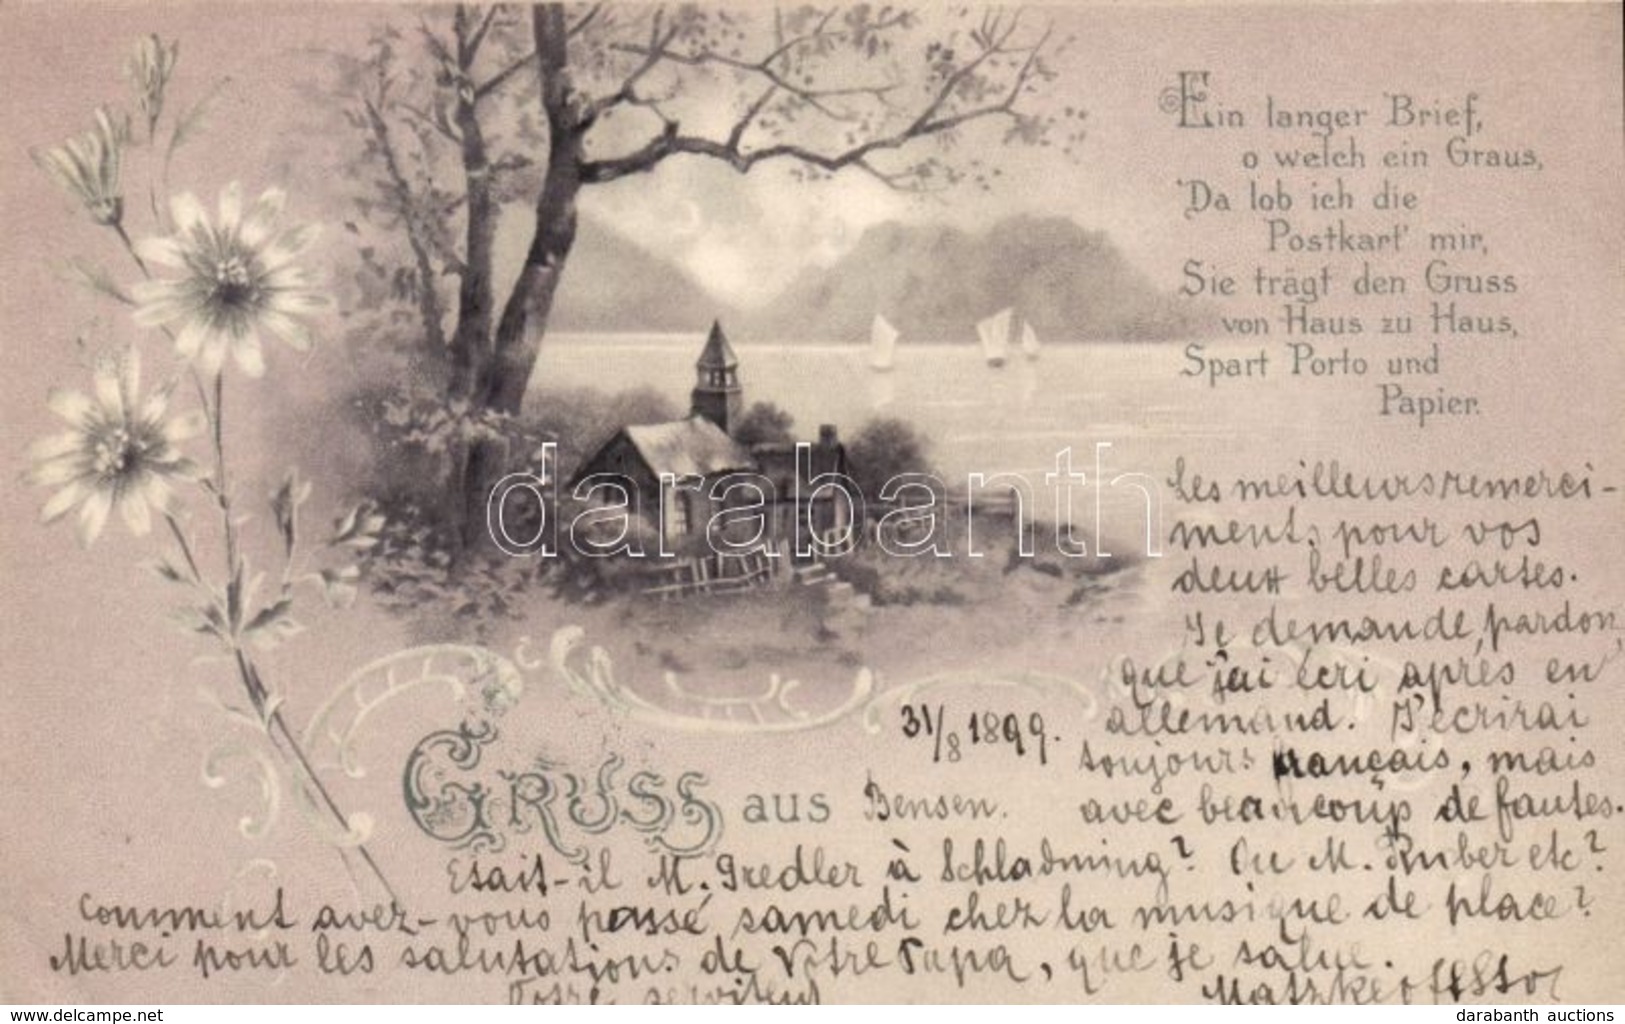 Ein langer Brief,
o welch ein Graus,
Da lob ich die
Postkart' mir,
Sie trägt den Gruss
von Haus zu Haus,
Spart Porto und
Papier.
Les meilleurs remerci-
ments pour vos
deux belles cartes.
Je demande pardon,
que j'ai écri après en
allemand. J'ecrirai
toujours français, mais
avec beaucoup de fautes.
31/8 1899.
GRUSS aus Bensen.
Etait-il M. Gredler à Schladming? Ou M. Ruber etc?
Comment avez-vous passé samedi chez la musique de place?
Merci pour les salutations de Vôtre Papa, que je salue.
Votre serviteur
darabanth
delcampe.net
darabanth auctions